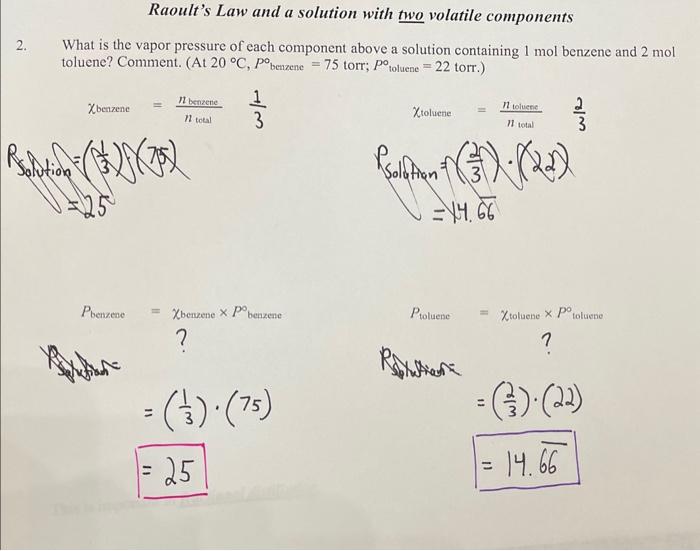 Raoult's Law and a solution with two volatile components
2. What is the vapor pressure of each component above a solution containing 1 mol benzene and 2 mol
toluene? Comment. (At 20 °C, P°benzene = 75 torr; P°toluene = 22 torr.)
χbenzene = n benzene / n total 1/3
χtoluene = n toluene / n total 2/3
Psolution = (1/3) · (75)
= 25
Psolution = (2/3) · (22)
= 14.6̅6̅
Pbenzene = χbenzene × P°benzene
?
Psolution =
= (1/3) · (75)
= 25
Ptoluene = χtoluene × P°toluene
?
Psolution =
= (2/3) · (22)
= 14.6̅6̅